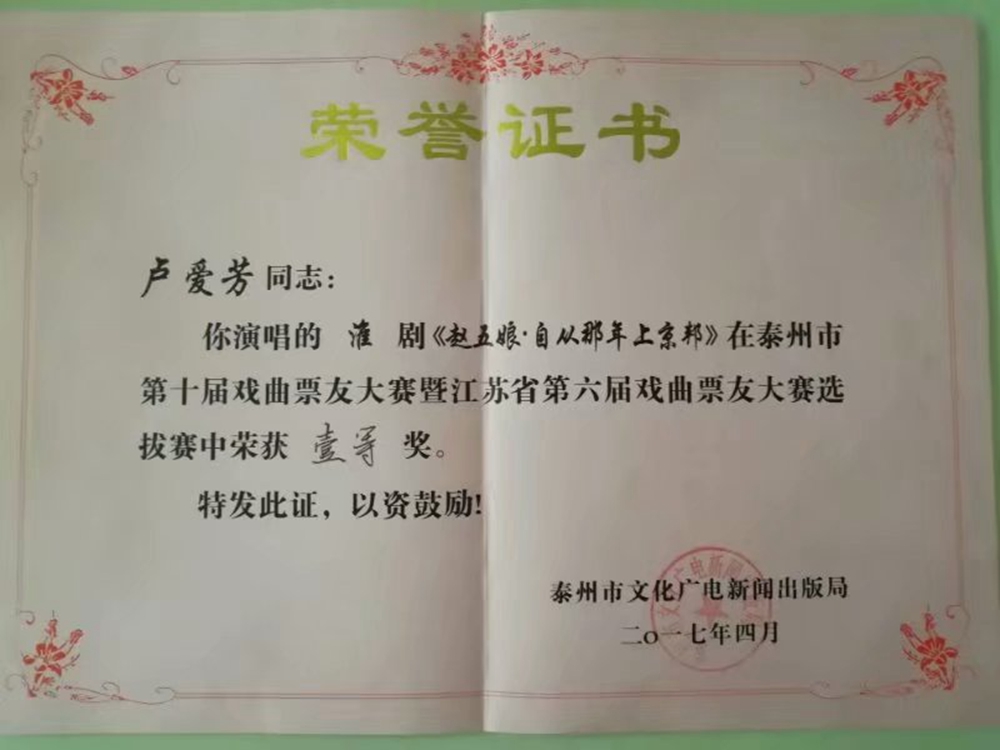 荣誉证书
卢爱芳同志：
你演唱的 淮 剧《赵五娘·自从那年上京邦》在泰州市
第十届戏曲票友大赛暨江苏省第六届戏曲票友大赛选
拔赛中荣获 壹等 奖。
特发此证，以资鼓励！
泰州市文化广电新闻出版局
二〇一七年四月